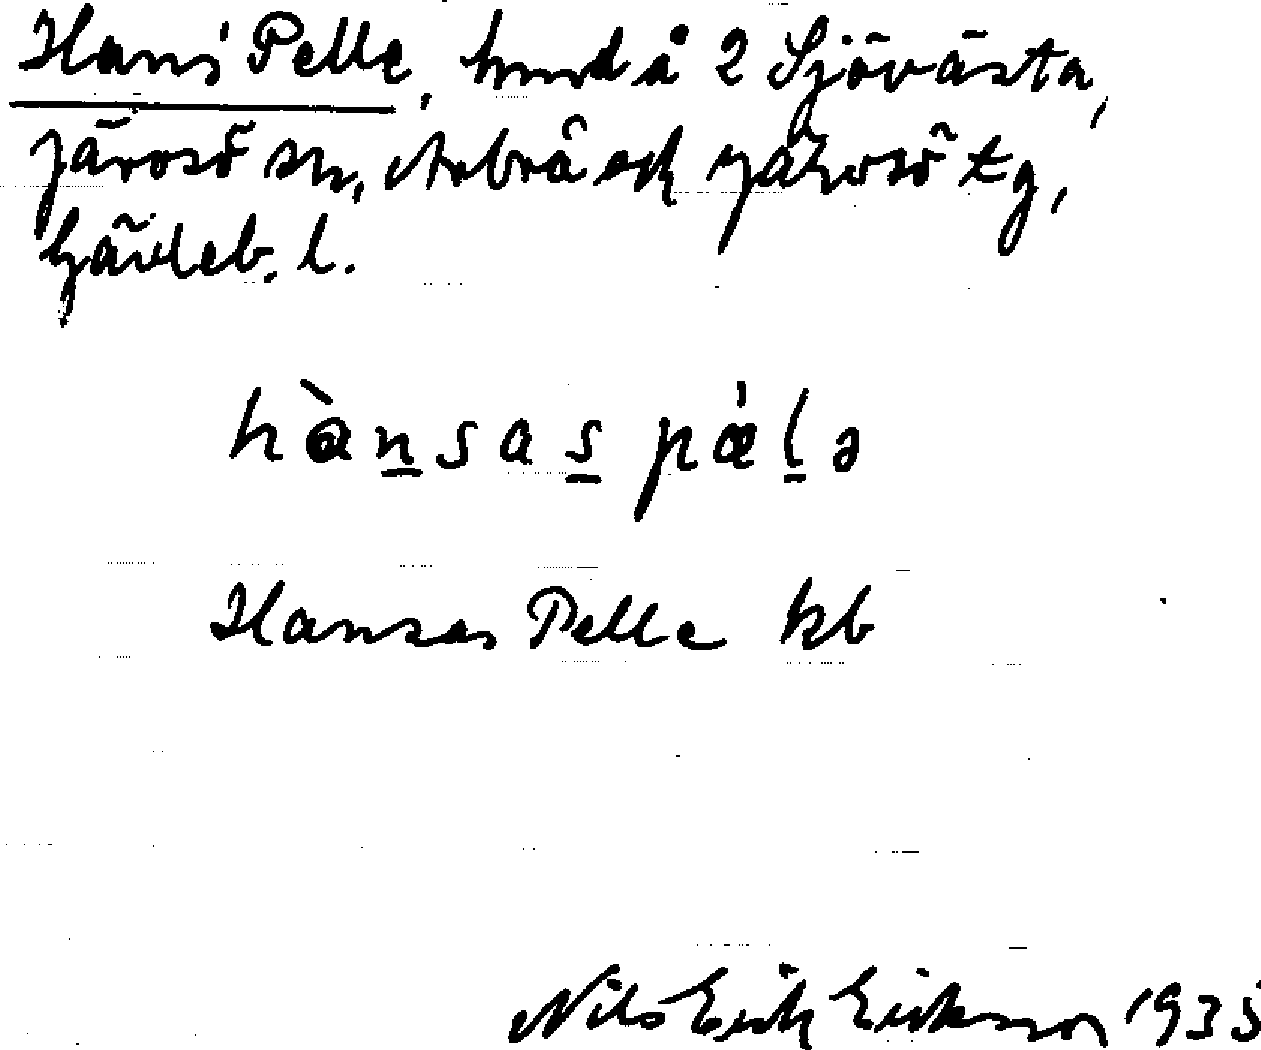 Hans' Pelle, hmd å 2 Sjövästa,
Järvsö sn, Arbrå och Järvsö tg,
Gävleb. l.
hànsas pǽlə
Hansas Pelle kb
Nils Erik Eriksson 1935